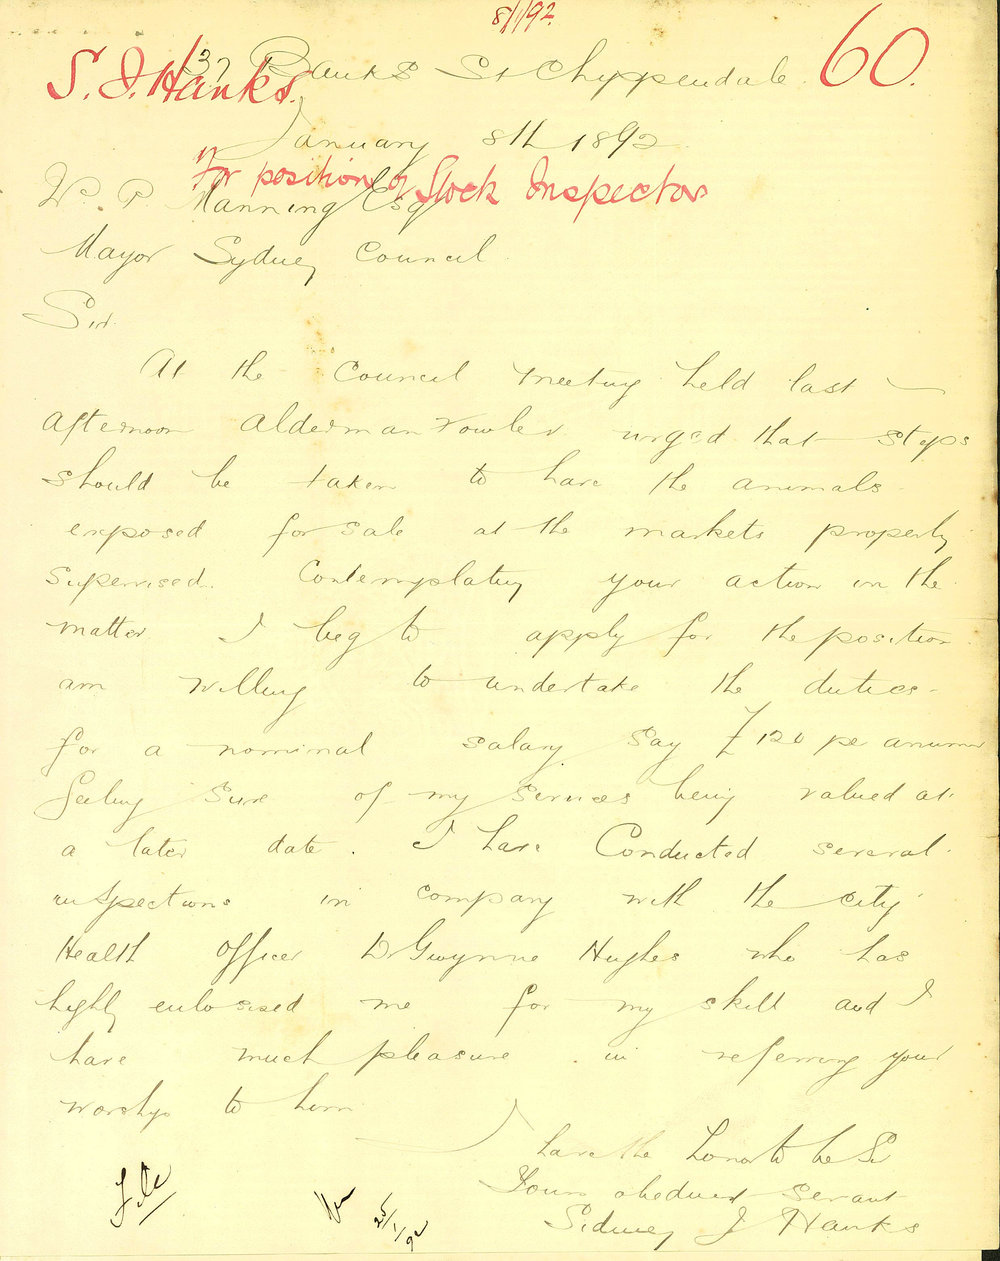 8/1/92
60.
S. J. Hanks.
37 Banks St Chyppendale
January 8th 1892
For position of Stock Inspector
W. P. Manning Esq
Mayor Sydney Council
Sir.
At the Council meeting held last
afternoon Alderman Fowler urged that steps
should be taken to have the animals
exposed for sale at the markets properly
supervised. Contemplating your action in the
matter I beg to apply for the position
am willing to undertake the duties
for a nominal salary say £120 per annum
feeling sure of my services being valued at
a later date. I have Conducted several
inspections in company with the city
Health Officer Dr Gwynne Hughes who has
highly me for my skill and I
have much pleasure in referring your
worship to him
I have the honor to be Sir
Yours obedient servant
Sidney J Hanks
File
25/1/92